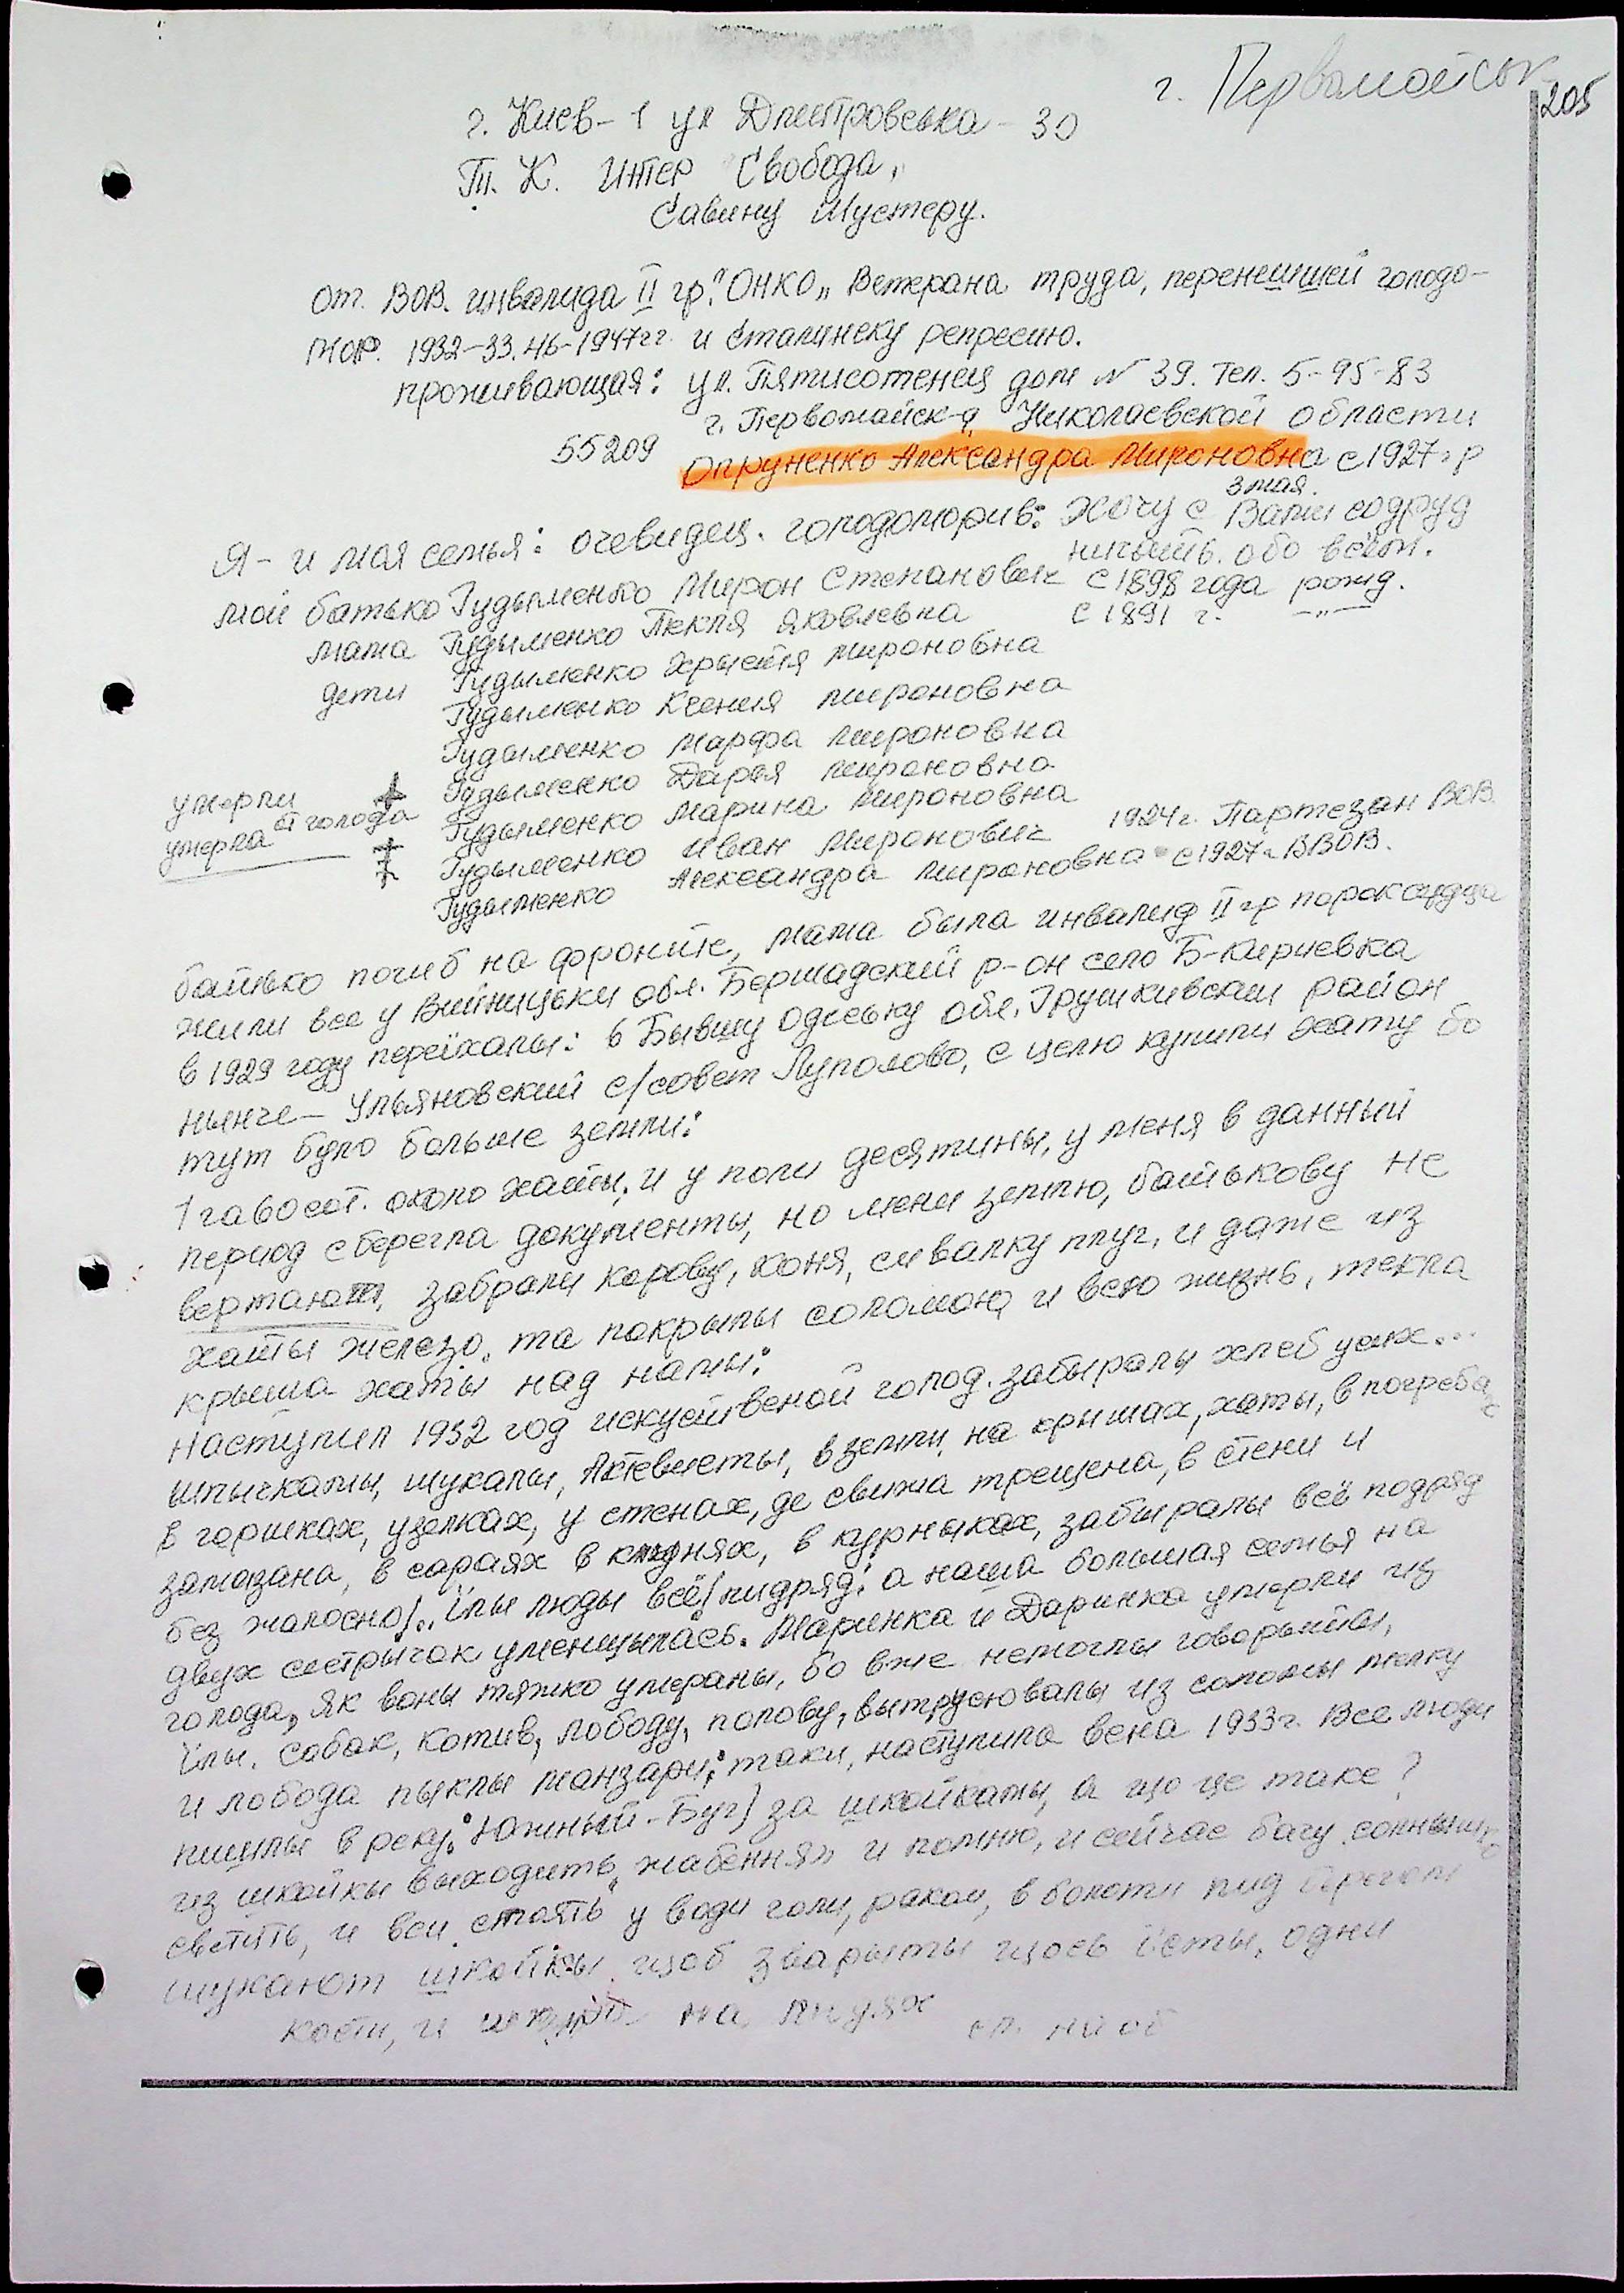 г. Первомайськ
205
г. Киев-1 ул Дмитровська-30
Т. К. Интер Свобода,
Савину Шустеру.
От. ВОВ. инвалида II гр. "ОНКО„ Ветерана труда, перенешшей голодо-
мор. 1932-33.46-1947гг и Сталинску репресию.
проживающая: ул. Пятисотенец дом № 39. Тел. 5-95-83
г. Первомайск-9 Николаевской области
55209 Опруненко Александра Мироновна с 1927 г р
3 мая.
Я - и моя семья: очевидец. голодоморив: Хочу с Вами содруд
ничыть. обо всём.
мой батько Гудыменко Мирон Степанович с 1898 года рожд.
мама Гудыменко Текля Яковлевна с 1891 г. -„-
дети Гудыменко Хрыстя Мироновна
Гудыменко Ксения Мироновна
Гудыменко Марфа Мироновна
умерли Гудыменко Дарья Мироновна
от голода Гудыменко Марина Мироновна
умерла Гудыменко Иван Миронович 1924 г. Партезан ВОВ.
Гудыменко Александра Мироновна с 1927 г. ВВОВ.
батько погиб на фронте, мама была инвалид II гр
жили все у Винницьки обл. Бершадский р-он село Б-Кириевка
в 1929 году переїхалы: в Бывшу Одеську обл. Грушкивский район
нынче - Ульяновский с/совет Луполово, с целю купили хату бо
тут було больше земли:
1 га 60 сот. около хаты, и у поли десятины, у меня в данный
период сберегла документы, но мени землю, батькову не
вертают, забрали корову, коня, сивалку плуг, и даже из
хаты железо, та покрылы соломою, и всю жизнь, текла
крыша хаты над намы:
Наступил 1932 год искуственой голод. забыралы хлеб усих...
шпычкамы, шукалы, Актевисты, в земли, на крышах, хаты, в погребах
в горшках, узелках, у стенах, де свижа трещена, в стени и
замазана, в сараях в клунях, в курныках, забыралы всё подряд
без жалосно!.. Їлы люды всё! пидряд: а наша большая семья на
двух сестрычок уменшылась. Маринка и Даринка умерли из
голода, як воны тяжко умераны, бо вже немоглы говорыты,
їлы. собак, котив, лободу, полову, вытрусювалы из соломы мелку
и лобода пыклы манзари: таки, наступила весна 1933г. Все люди
пишлы в реку: Южный-Буг) за шкойкамы, а що це таке?
из шкойкы выходить „жабення„ и помню, и сейчас бачу сонычко
светить, и вси стоять у води голи, раком, в болоти пид берегом
шукают шкойкы щоб зварыты щось йсты, одни
кости, и шкура на людях см. на об